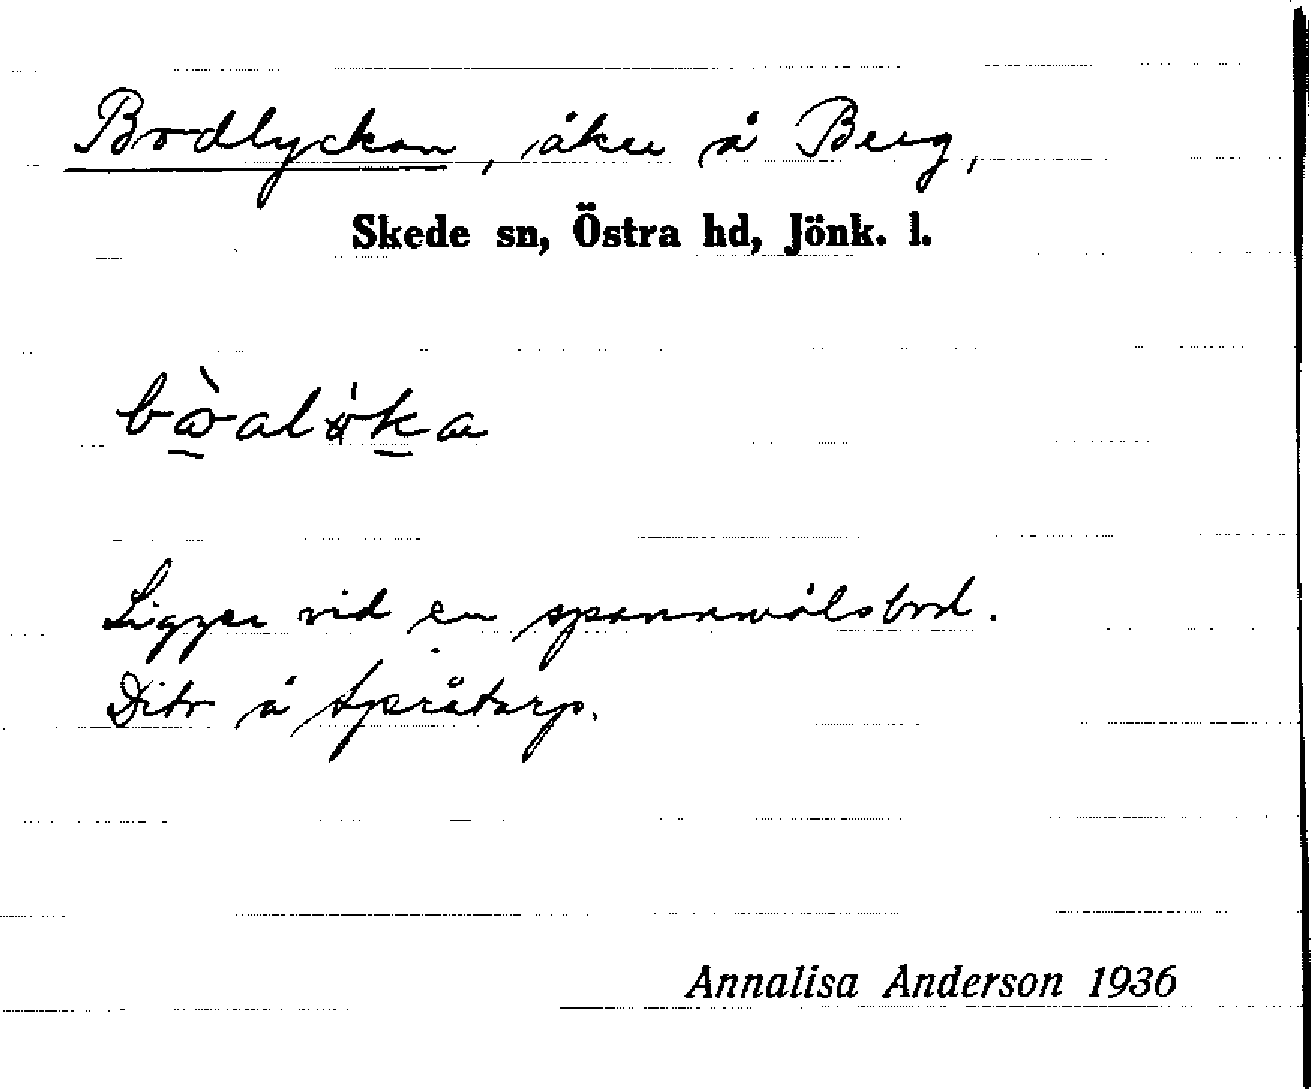 Bodlyckan, åker å Berg,
Skede sn, Östra hd, Jönk. l.
Ligger vid en spannmålsbod.
Dito å Språtarp.
Annalisa Anderson 1936